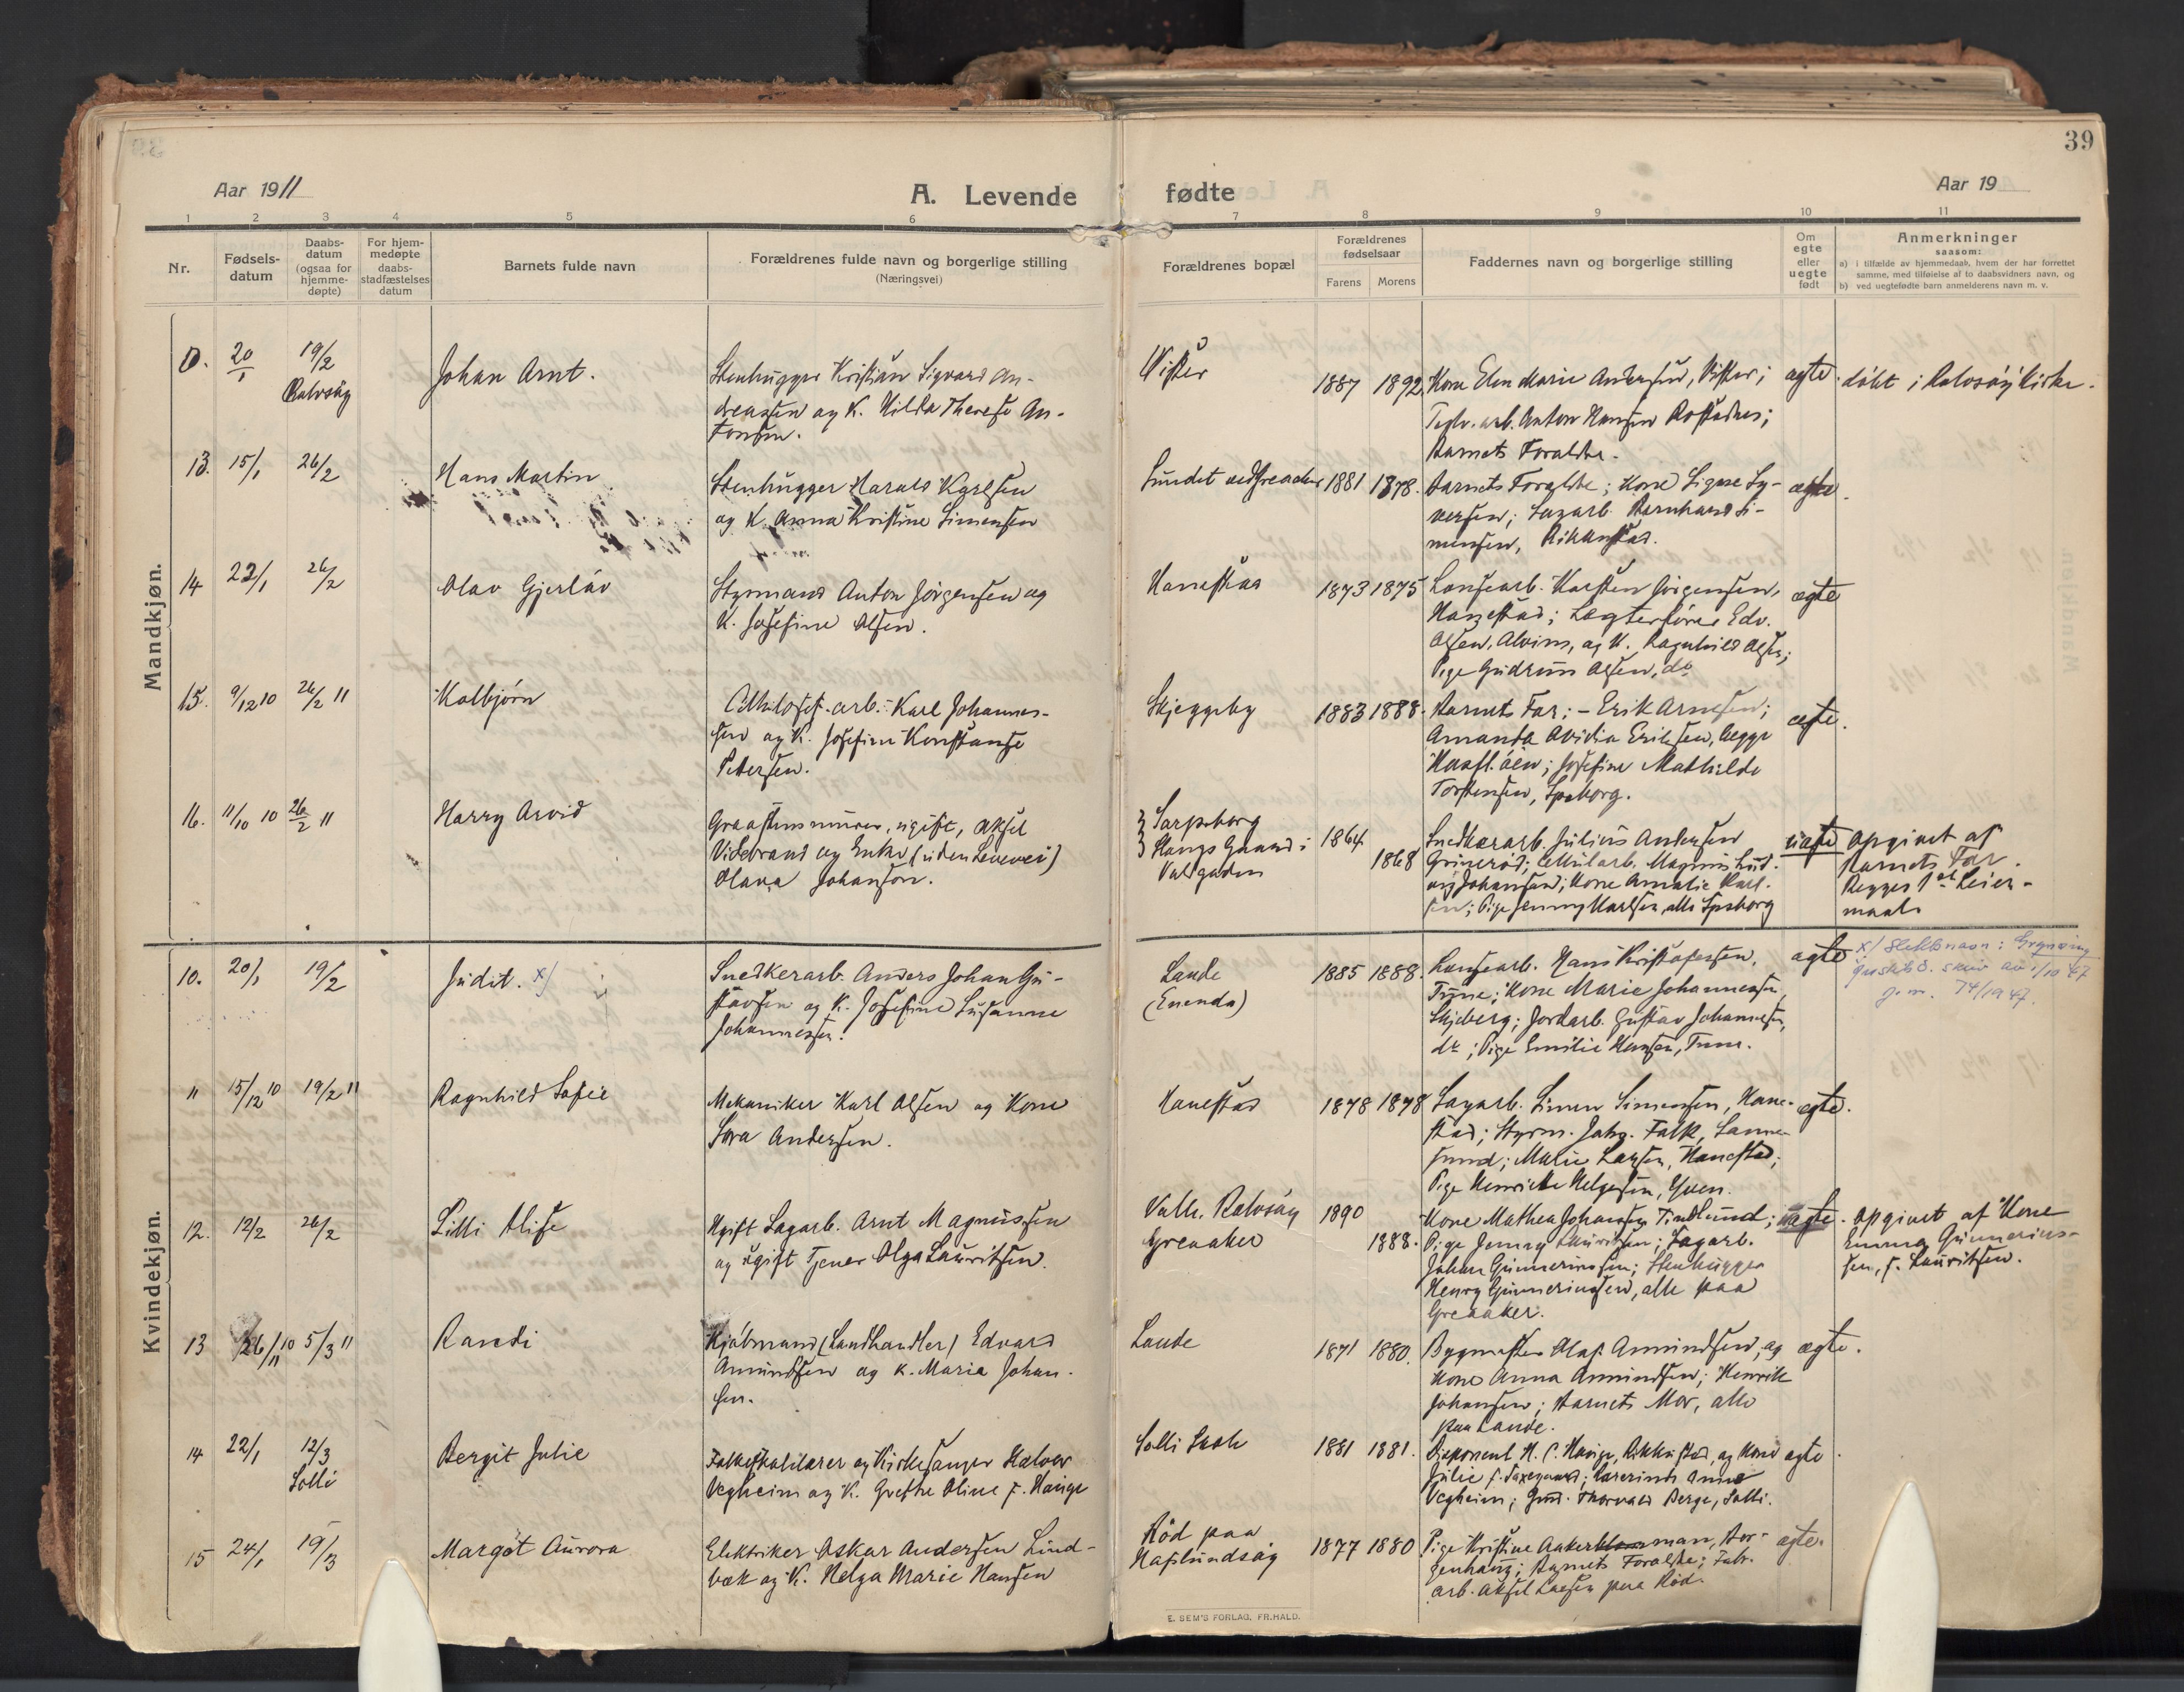 39
Aar 1911
A. Levende fødte
Aar 19
1 2 3 4 5 6 7 8 9 10 11
Nr.
Fødsels-
datum
Daabs-
datum
(ogsaa for
hjemme-
døpte)
For hjem-
medøpte
daabs-
stadfæstelses
datum
Barnets fulde navn
Forældrenes fulde navn og borgerlige stilling
(Næringsvei)
Forældrenes bopæl
Forældrenes
fødselsaar
Farens Morens
Faddernes navn og borgerlige stilling
Om
egte
eller
uegte
født
Anmerkninger
saasom:
a) i tilfælde av hjemmedaab, hvem der har forrettet
samme, med tilføielse af to daabsvidners navn, og
b) ved uegtefødte barn anmelderens navn m. v.
Mandkjøn.
0. 20/1 19/2
Rolvsøy
Johan Arnt.
Stenhugger Kristian Sigvard An-
dreassen og K. Hilda Therese An-
tonsen.
Vister
1887 1892
Kone Elen Marie Andersen, Vister;
Teglv. arb. Anton Hansen Rostadnes;
Barnets Forældre.
ægte.
døbt i Rolvsøy Kirke.
13. 15/1 26/2
Hans Martin
Stenhugger Harald Karlsen
og K. Anna Kristine Simensen
Sundet ved Greaaker
1881 1878.
Barnets Forældre; Kone Signe Sy-
versen; Sagarb. Bernhard Si-
mensen,
ægte.
14 22/1 26/2
Olav Gjerløv
Styrmand Anton Jörgensen og
K. Josefine Olsen.
Hanestad
1873 1875
Lensearb. Karsten Jörgensen,
Hanestad; Lægterfører Edv.
Olsen, Alvim, og K. Ragnhild Olsen;
Pige Gudrun Olsen, do
ægte
15. 9/12 10 26/2 11
Kolbjørn
Cellulosef. arb. Karl Johannes-
sen og K. Josefine Konstanse
Petersen.
Skjeggeby
1883 1888.
Barnets Far; - Erik Arnesen;
Amanda Ovidia Eriksen, begge
Hasl. øen; Josefine Mathilde
Torstensen, Spsborg.
ægte.
16. 11/10 10 26/2 11
Harry Arvid
Graastensmurer, ugift, Aksel
Videbrand og Enke (uden Levevei)
Olava Johanson.
Sarpsborg
Stangs Gaard i
Valgaden
1864
1868
Snedkerarb. Julius Andersen
Grinerød; Mølarb. Magnus Lud-
vig Johansen; Kone Amalie Karl-
sen; Pige Jenny Karlsen, alle Spsborg
uægte
Opgivet af
Barnets Far.
Begges 1ste Leier-
maal.
Kvindekjøn.
10. 20/1 19/2
Judit. x/
Snedkerarb. Anders Johan Gu-
stavsen og K. Josefine Susanne
Johannessen.
Lande
(Enenda)
1885 1888.
Lensearb. Hans Kristofersen,
Tune; Kone Marie Johannessen,
Skjeberg; Jordarb. Gustav Johannessen,
do; Pige Emilie Hansen, Tune.
ægte
x/ Slektsnavn:
skriv av 1/10 47
j.nr. 74/1947.
11 15/12 10 19/2 11
Ragnhild Sofie
Mekaniker Karl Olsen og Kone
Sara Andersen.
Hanestad
1878 1878
Sagarb. Simen Simensen, Hane-
stad; Styrm. Johs. Falk, Sanne-
sund; Marie Larsen, Hanestad;
Pige Henriette Helgesen, Yven.
ægte.
12. 12/2 26/2
Lilli Alise
Ugift Sagarb. Arnt Magnussen
og ugift Tjener Olga Lauritsen.
Valle, Rolvsøy
Greaaker
1890
1888.
Kone Mathea Johansen Tindlund;
Pige Jenny Lauritsen; Sagarb.
Johan Gunneriussen; Stenhugger
Henry Gunneriussen, alle paa
Greaaker.
uægte.
Opgivet af Kone
Emma Gunnerius-
sen, f. Lauritsen.
13 26/11 10 5/3 11
Randi
Kjøbmand (Landhandler) Edvard
Amundsen og K. Maria Johan-
sen.
Lande
1871 1880.
Bygmester Olaf Amundsen, og
Kone Anna Amundsen; Henrik
Johansen; Barnets Mor, alle
paa Lande.
ægte.
14 22/1 12/3
Solli
Bergit Julie
Folkeskolelærer og Kirkesanger Halvor
Vegheim og K. Grethe Oline f. Hauge
Solli Skole
1881 1881.
Disponent H. C. Hauge, og Kone
Julie f. ; Lærerinde Anne
Vegheim; Gmd. Thorvald Berge, Solli.
ægte.
15 24/1 19/3
Margot Aurora
Elektriker Oskar Andersen Lind-
bæk og K. Helga Marie Hansen
Rød paa
Hafslundsøy
1877 1880
Pige Kristine Aakerman, Bor-
genhaug; Barnets Forældre; Fabr.
arb. Aksel Larsen paa Rød.
ægte.
E. SEM'S FORLAG, FR.HALD.